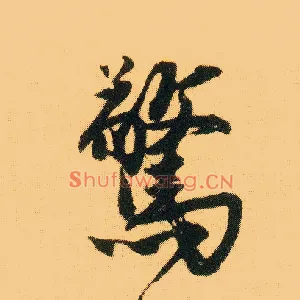 驚
ShufaWang.CN